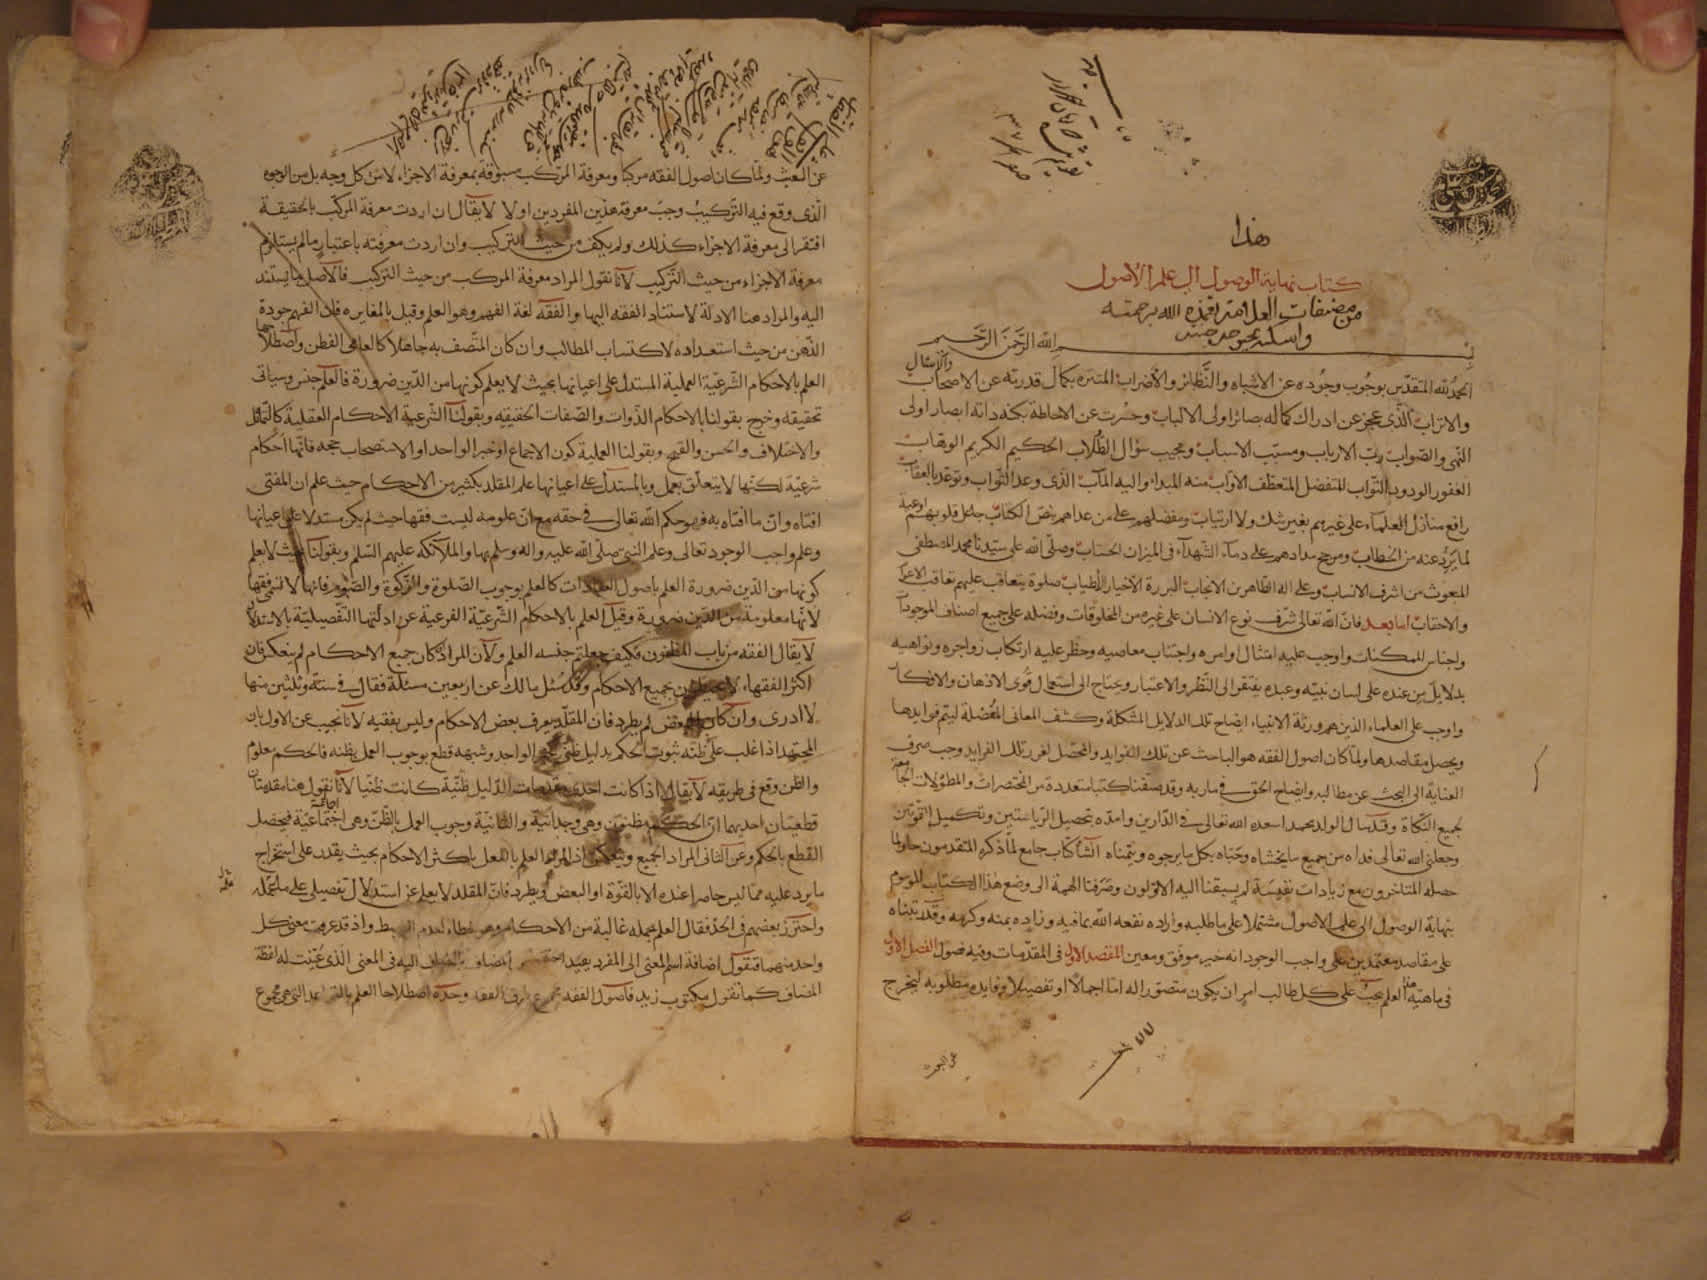 هذا
كتاب نهاية الوصول الى علم الاصول
من مصنفات العلامة تغمده الله برحمته
واسكنه بحبوحة جنته
بسم الله الرحمن الرحيم
الحمد لله المتقدس بوجوب وجوده عن الاشباه والنظائر والاضراب المتنزه بكمال قدرته عن الاصحاب
والاتراب الذى عجز عن ادراك كماله بصائر اولى الالباب وحسرت عن الاحاطة بكنه ذاته ابصار اولى
النهى والصواب رب الارباب ومسبب الاسباب ومجيب سؤال الطلاب الحكيم الكريم الوهاب
الغفور الودود التواب المتفضل المتعطف الاواب منه المبداء واليه المآب الذى وعد الثواب وتوعد بالعقاب
رافع منازل العلماء على غيرهم بغير شك ولا ارتياب ومفضلهم على من عداهم بنص الكتاب جاعل قلوبهم اوعية
لما يرد عنه من الخطاب ومرجح مدادهم على دماء الشهداء فى الميزان الحساب وصلى الله على سيدنا محمد المصطفى
المبعوث من اشرف الانساب وعلى اله الطاهرين الانجاب البررة الاخيار الاطياب صلوة يتعاقب عليهم تعاقب
والاحقاب اما بعد فان الله تعالى شرف نوع الانسان على غيره من المخلوقات وفضله على جميع اصناف الموجودات
واجناس الممكنات واوجب عليه امتثال اوامره واجتناب معاصيه وحظر عليه ارتكاب زواجره ونواهيه
بدلايل من عنده على لسان نبيه وعبده يفتقر الى النظر والاعتبار ويحتاج الى استعمال قوى الاذهان والافكار
واوجب على العلماء الذين هم ورثة الانبياء ايضاح تلك الدلايل المشكلة وكشف المعانى المعضلة ليتم فوايدها
ويحصل مقاصدها ولما كان اصول الفقه هو الباحث عن تلك الفوايد والمحصل لغرر تلك الفرايد وجب صرف
العناية الى البحث عن مطالبه وايضاح الحق فى ماربه وقد صنفنا كتبا متعددة من المختصرات والمطولات الجامعة
لجميع النكات وقد سال الولد محمد اسعده الله تعالى فى الدارين وامده بتحصيل الرياستين وتكميل القوتين
وجعلنى الله تعالى فداه من جميع ما يخشاه وحباه بكل ما يرجوه ويتمناه انشاء كتاب جامع لما ذكره المتقدمون حاو لما
حصله المتاخرون مع زيادات نفيسة لم يسبقنا اليه الاولون وصرفنا الهمة الى وضع هذا الكتاب الموسوم
بنهاية الوصول الى علم الاصول مشتملا على ما طلبه واراده نفعه الله بما فيه وزاده بمنه وكرمه وقد رتبناه
على مقاصد معتمدين على واجب الوجود انه خير موفق ومعين المقصد الاول فى المقدمات وفيه فصول الفصل الاول
فى ماهية هذا العلم يجب على كل طالب امر ان يكون متصورا له اما اجمالا او تفصيلا وفايدة مطلوبه ليخرج
عن العبث
عن العبث ولما كان اصول الفقه مركبا ومعرفة المركب مسبوقة بمعرفة الاجزاء لا من كل وجه بل من الوجه
الذى وقع فيه التركيب وجب معرفة هذين المفردين اولا لا يقال ان اردت معرفة المركب بالحقيقة
افتقر الى معرفة الاجزاء كذلك ولم يكف من حيث التركيب وان اردت معرفته باعتبار ما لم يستلزم
معرفة الاجزاء من حيث التركيب لانا نقول المراد معرفة المركب من حيث التركيب فالاصل ما يستند
اليه والمراد هنا الادلة لاستناد الفقه اليها والفقه لغة الفهم وهو العلم وقيل بالمغايره فان الفهم جودة
الذهن من حيث استعداده لاكتساب المطالب وان كان المتصف به جاهلا كالعامى الفطن واصطلاحا
العلم بالاحكام الشرعية العملية المستدل على اعيانها بحيث لا يعلم كونها من الدين ضرورة فالعلم جنس وسياتى
تحقيقه وخرج بقولنا بالاحكام الذوات والصفات الحقيقيه وبقولنا الشرعية الاحكام العقلية كالتماثل
والاختلاف والحسن والقبح وبقولنا العملية كون الاجماع او خبر الواحد او الاستصحاب حجة فانها احكام
شرعية لكنها لا يتعلق بعمل وبالمستدل على اعيانها علم المقلد بكثير من الاحكام حيث علم ان المفتى
افتاه وان ما افتاه به فهو حكم الله تعالى فى حقه مع ان علومه ليست فقها حيث لم يكن مستدلا على اعيانها
وعلم واجب الوجود تعالى وعلم النبى صلى الله عليه واله وسلم بها والملائكه عليهم السلم وبقولنا بحيث لا يعلم
كونها من الدين ضرورة العلم باصول العبادات كالعلم بوجوب الصلوة والزكوة والصوم فانها لا تسمى فقها
لانها معلومة من الدين ضرورة وقيل العلم بالاحكام الشرعية الفرعية عن ادلتها التفصيلية بالاستدلال
لا يقال الفقه من باب الظنون فكيف جعلتم جنسه العلم ولان المراد ان كان جميع الاحكام لم ينعكس فان
اكثر الفقهاء لا يحيطون بجميع الاحكام وقد سئل مالك عن اربعين مسئلة فقال فى ستة وثلثين منها
لا ادرى وان كان البعض لم يطرد فان المقلد يعرف بعض الاحكام وليس بفقيه لانا نجيب عن الاول بان
المجتهد اذا غلب على ظنه ثبوت الحكم بدليل ظنى كخبر الواحد وشبهه قطع بوجوب العمل بظنه فالحكم معلوم
والظن وقع فى طريقه لا يقال اذا كانت احدى مقدمات الدليل ظنية كانت ظنيا لانا نقول هنا مقدمتان
قطعيتان احديهما ان الحكم مظنون وهى وجدانية والثانية وجوب العمل بالظن وهى اجماعية فيحصل
القطع بالحكم وعن الثانى المراد الجميع وينعكس اذ المراد العلم بالفعل باكثر الاحكام بحيث يقدر على استخراج
ما يرد عليه مما ليس حاصرا عنده الا بالقوة او البعض ويطرد فان المقلد لا يعلم عن استدلال تفصيلى على ما
واحترز بعضهم فى الحد فقال العلم بجملة غالبة من الاحكام وهو خطاء لعدم الضبط واذ قد عرفت معنى كل
واحد منهما فنقول اضافة اسم المعنى الى المفرد يفيد اختصاص المضاف بالمضاف اليه فى المعنى الذى عينت له لفظة
المضاف كما نقول مكتوب زيد فاصول الفقه مجموع طرق الفقه وحده اصطلاحا العلم بالقواعد التى هى مجموع